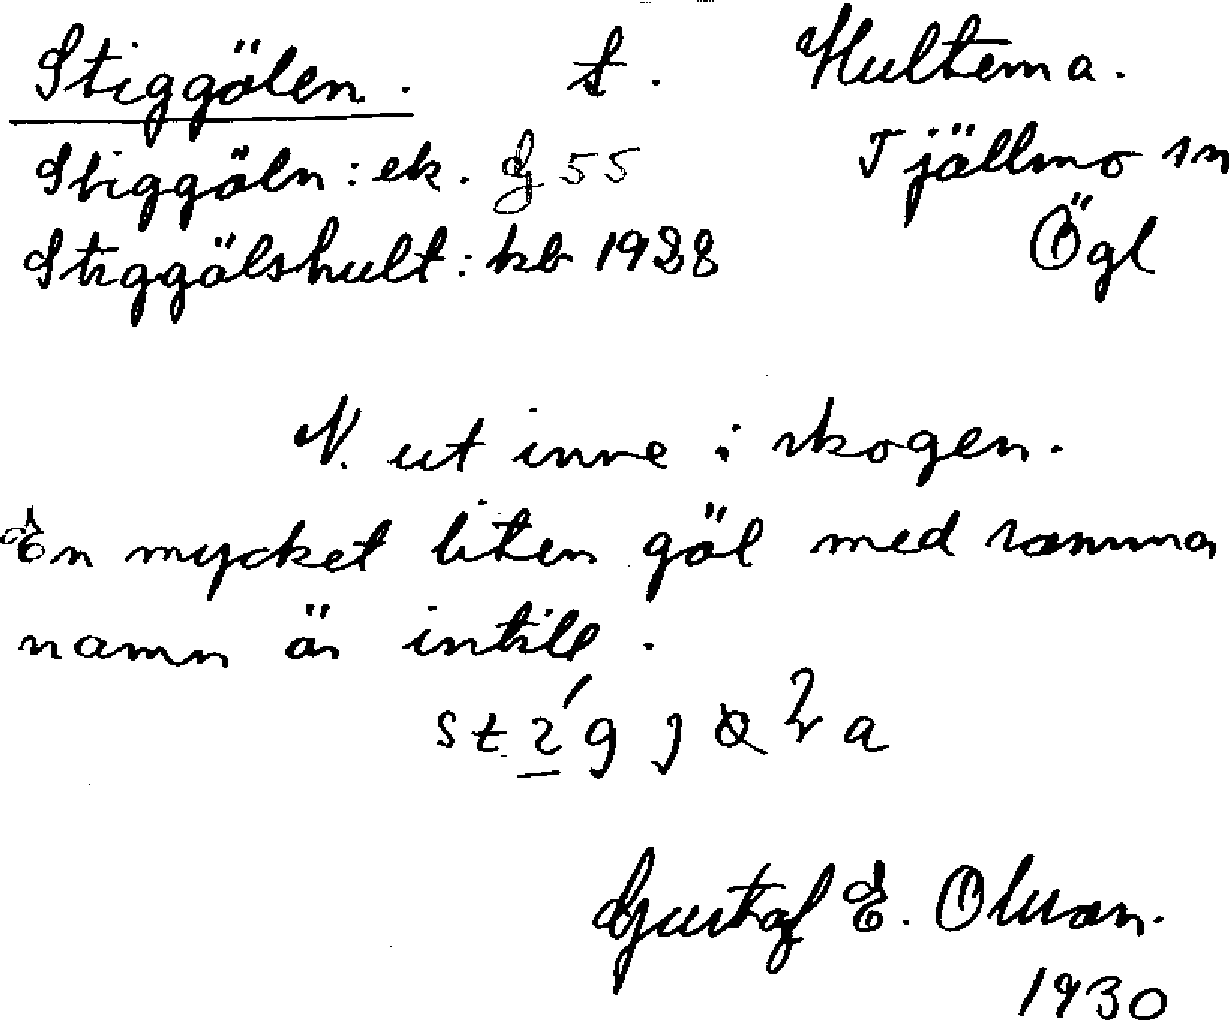 Stiggölen. t. Hultema.
Stiggöln: ek. G 55 Tjällmo sn
Stiggölshult: kb 1928 Ögl
N. ut inne i skogen.
En mycket liten göl med samma
namn är intill.
Gustaf E. Olsson.
1930